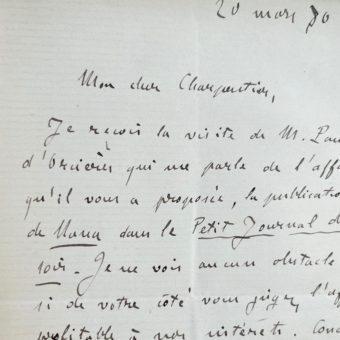 20 mars 80
Mon cher Charpentier,
Je reçois la visite de M. Pau
d'Orcières qui me parle de l'affa
qu'il vous a proposée, la publication
de Nana dans le Petit Journal d
soir. Je ne vois aucun obstacle
si de votre côté vous jugez l'aff
profitable à nos intérêts. Conc